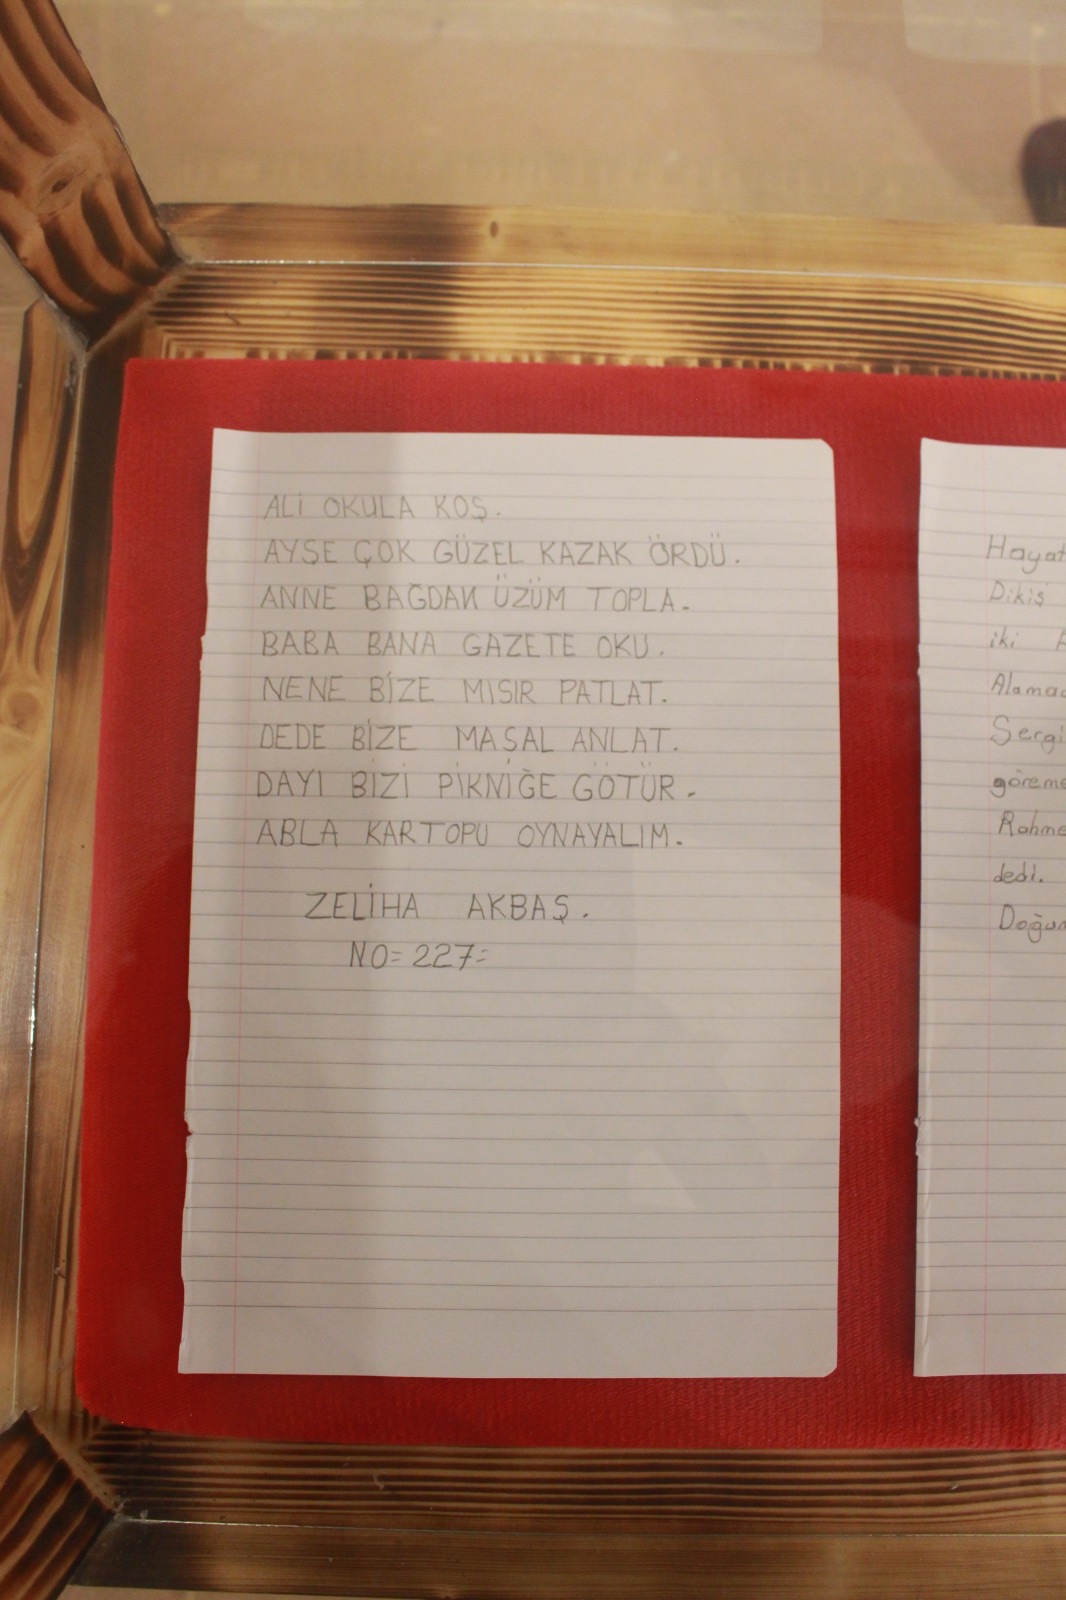 ALİ OKULA KOŞ.
AYŞE ÇOK GÜZEL KAZAK ÖRDÜ.
ANNE BAĞDAN ÜZÜM TOPLA.
BABA BANA GAZETE OKU.
NENE BİZE MISIR PATLAT.
DEDE BİZE MASAL ANLAT.
DAYI BİZİ PİKNİĞE GÖTÜR.
ABLA KARTOPU OYNAYALIM.
ZELİHA AKBAŞ.
NO=227=
Hayat
Dikiş
iki
Alamad
Sergi
göreme
Rahme
dedi.
Doğum